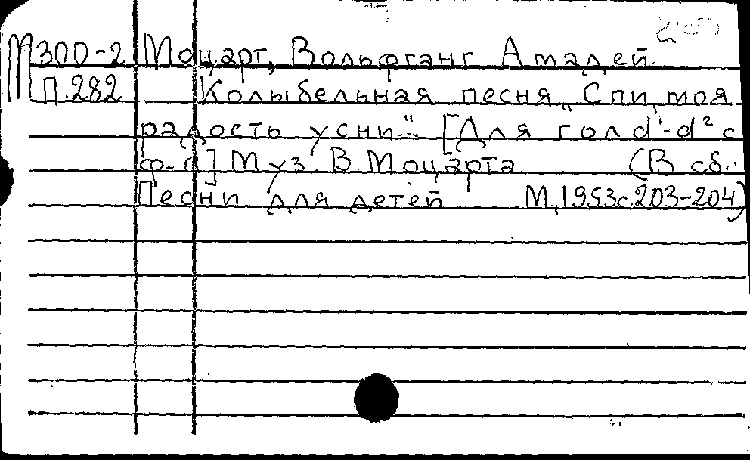 М300-2 Моцарт, Вольфганг Амадей
П.282 Колыбельная песня „Спи, моя
радость усни“ [Для гол d¹-d² с
ф-п] Муз. В Моцарта (В сб.:
Песни для детей М, 1953 с. 203-204)